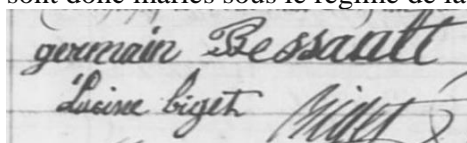 sont donc mariés sous le régime de la
germain Bessault
Lucine biget Biget